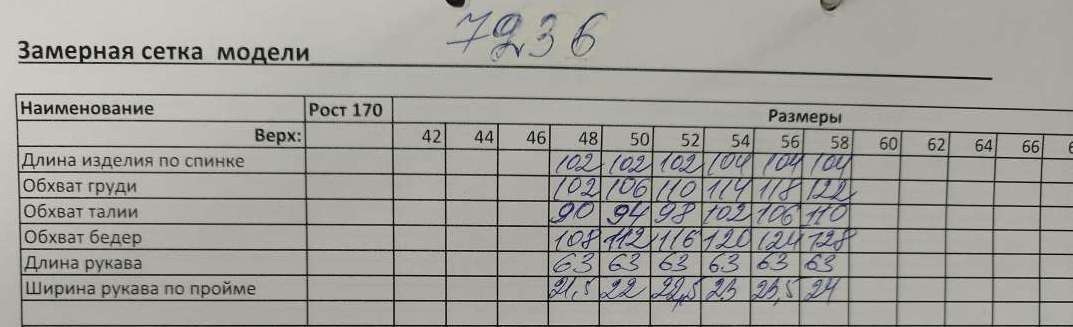 7236
Замерная сетка модели
Наименование Рост 170 Размеры
Верх: 42 44 46 48 50 52 54 56 58 60 62 64 66
Длина изделия по спинке 102 102 102 104 104 104
Обхват груди 102 106 110 114 118 122
Обхват талии 90 94 98 102 106 110
Обхват бедер 108 112 116 120 124 128
Длина рукава 63 63 63 63 63 63
Ширина рукава по пройме 21,5 22 22,5 23 23,5 24